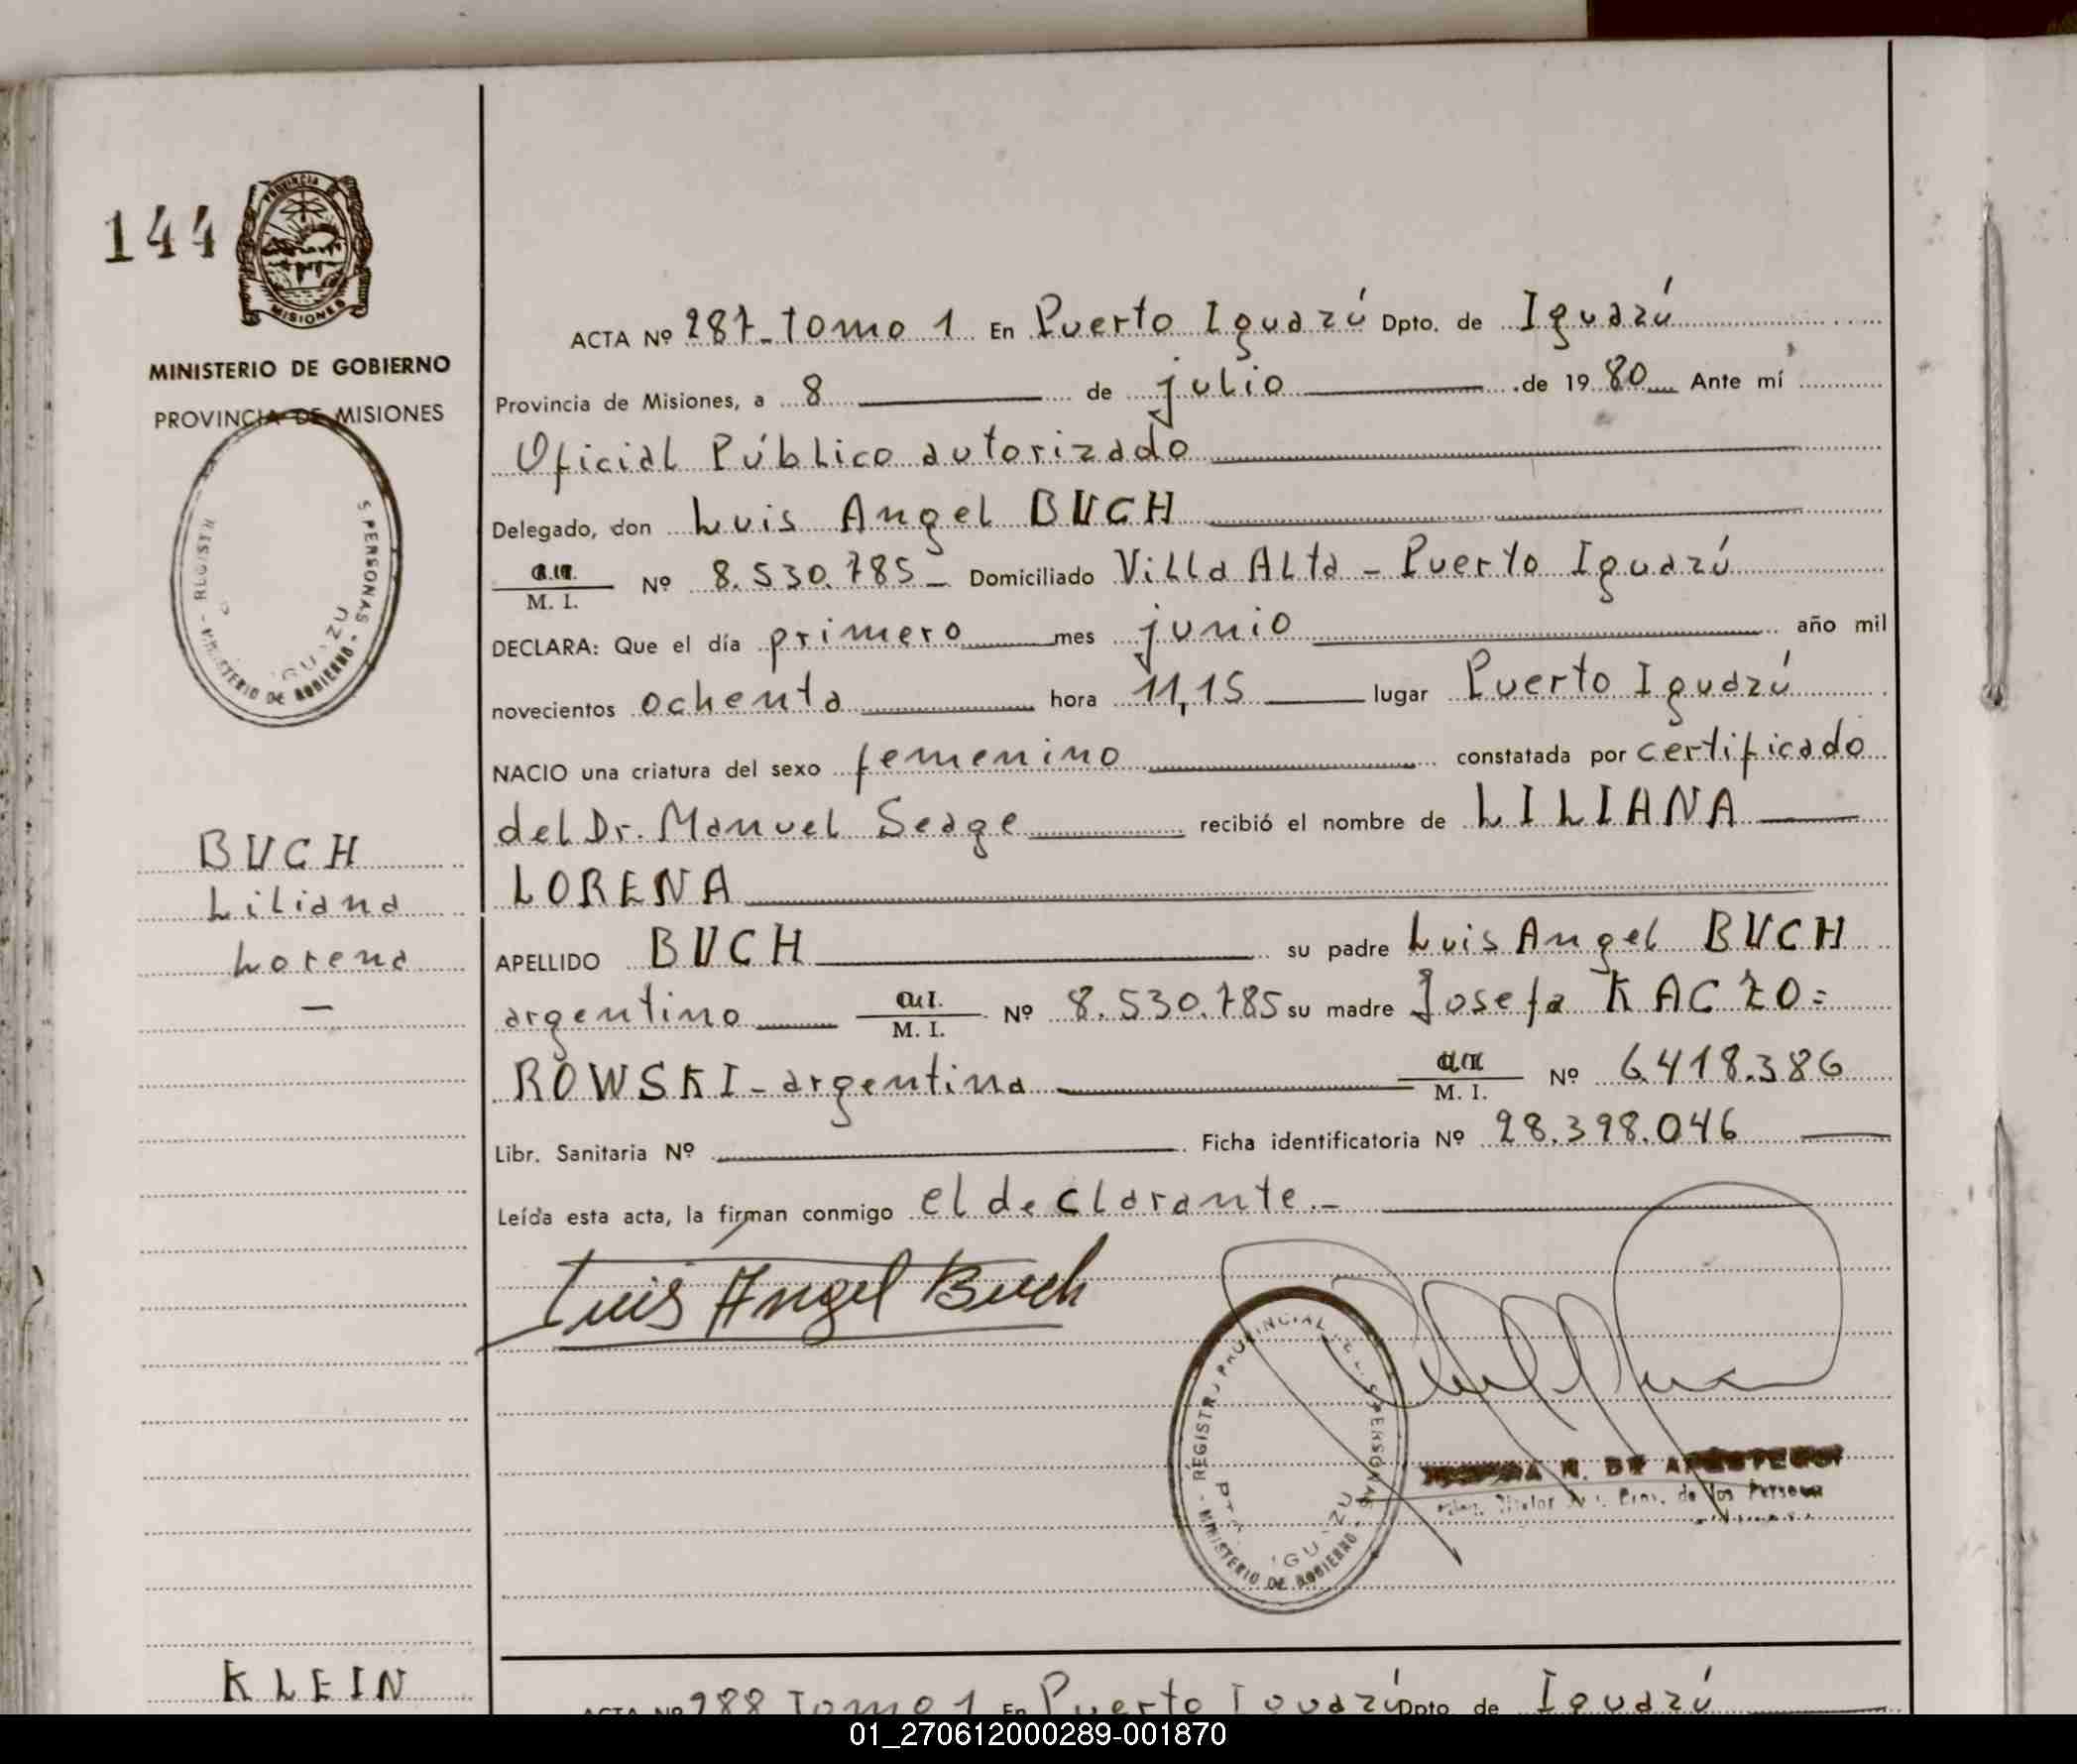 144
PROVINCIA DE
MISIONES
MINISTERIO DE GOBIERNO
PROVINCIA DE MISIONES
REGISTR
S PERSONAS
MINISTERIO DE GOBIERNO
BUCH
Liliana
Lorena
—
ACTA Nº 287_Tomo 1 En Puerto Iguazú Dpto. de Iguazú
Provincia de Misiones, a 8 de julio de 1980 Ante mí
Oficial Público autorizado
Delegado, don Luis Angel BUCH
M. I. Nº 8.530.785_ Domiciliado Villa Alta - Puerto Iguazú
DECLARA: Que el día primero mes junio año mil
novecientos ochenta hora 11,15 lugar Puerto Iguazú
NACIO una criatura del sexo femenino constatada por certificado
del Dr. Manuel Seage recibió el nombre de LILIANA
LORENA
APELLIDO BUCH su padre Luis Angel BUCH
argentino M. I. Nº 8.530.785 su madre Josefa KACZO=
ROWSKI - argentina M. I. Nº 6.418.386
Libr. Sanitaria Nº Ficha identificatoria Nº 28.398.046
Leída esta acta, la firman conmigo el declarante.-
Luis Angel Buch
REGISTRO PROVINCIAL DE L S PERSONAS
MINISTERIO DE GOBIERNO
N. DE
de los
KLEIN
ACTA Nº 288 Tomo 1 En Puerto Iguazú Dpto de Iguazú
01_270612000289-001870